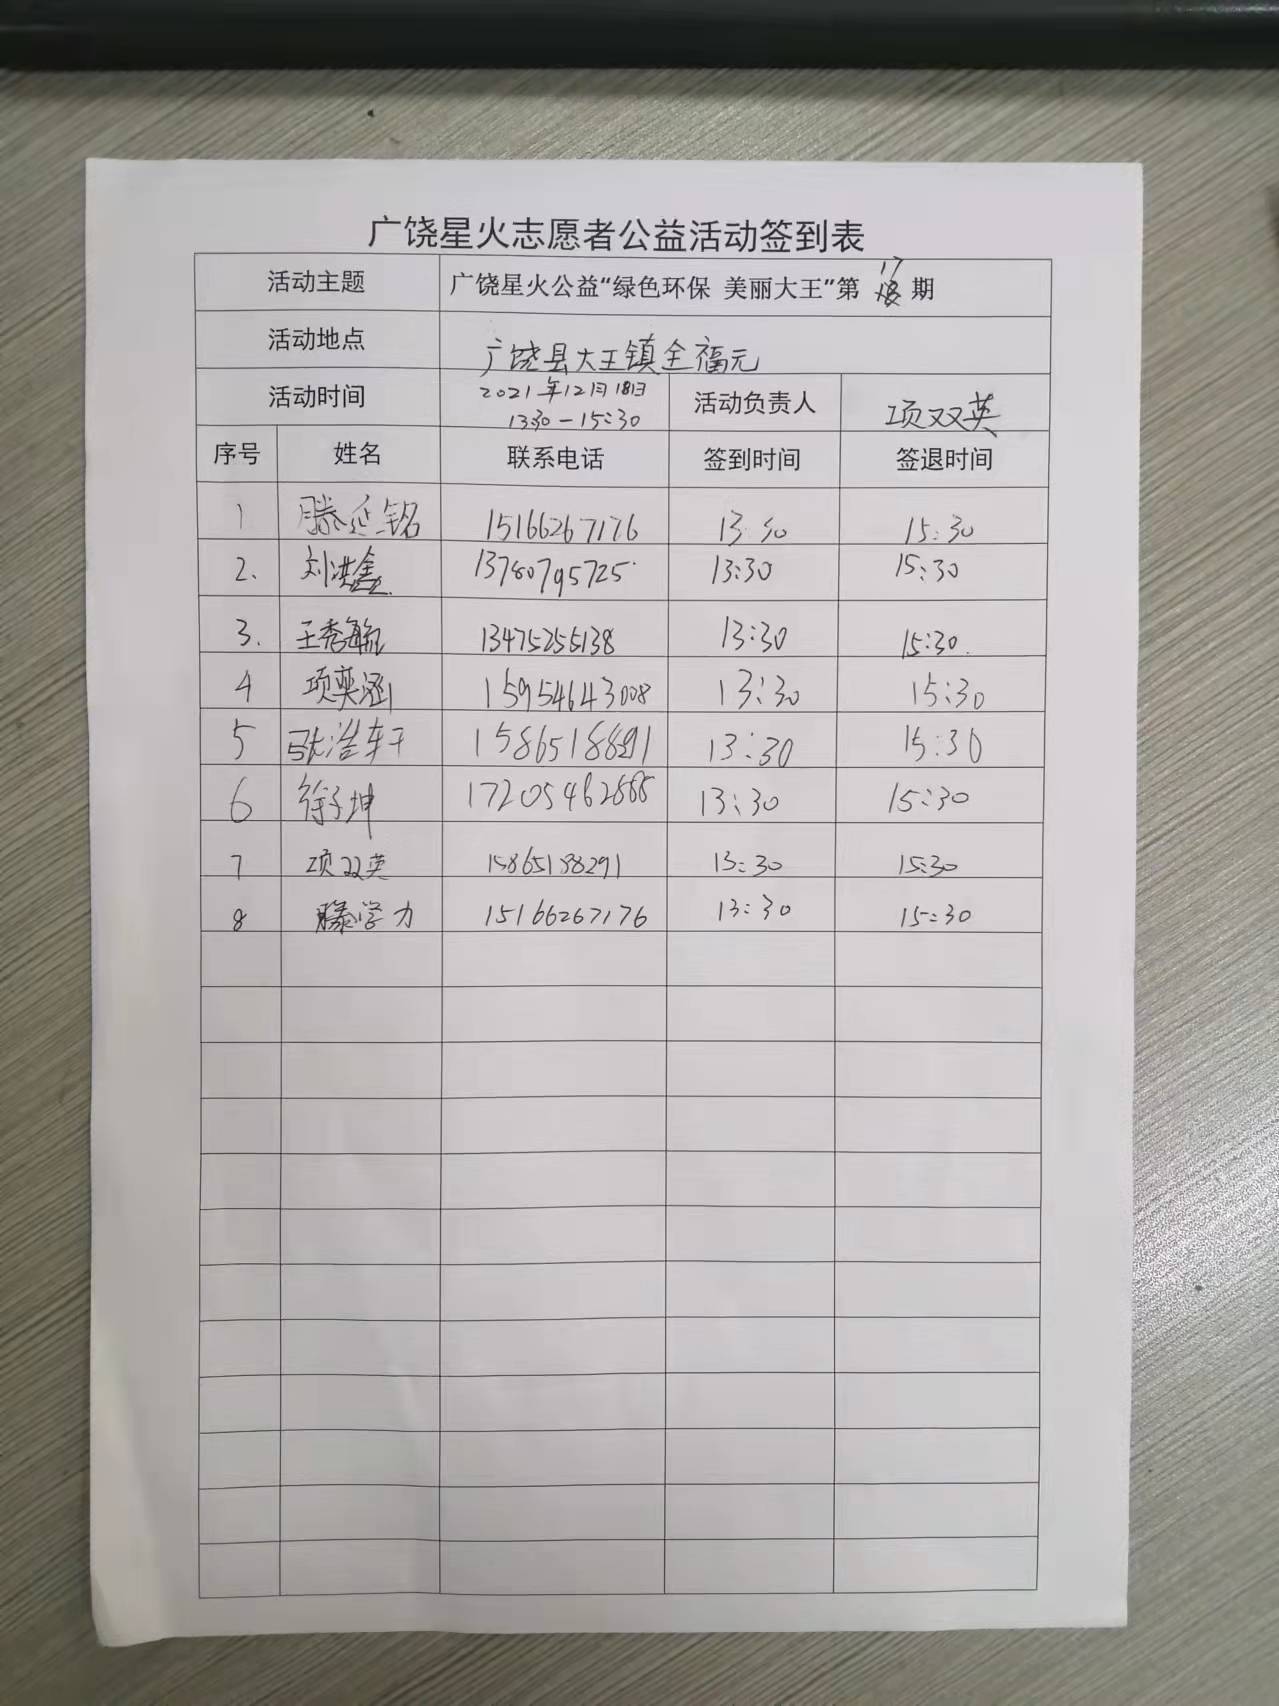 广饶星火志愿者公益活动签到表
活动主题 广饶星火公益“绿色环保 美丽大王”第 17 期
活动地点 广饶县大王镇全福元
活动时间 2021年12月18日 13:30—15:30 活动负责人 项双英
序号 姓名 联系电话 签到时间 签退时间
1 滕延铭 15166267176 13:30 15:30
2. 刘洪鑫 13780795725 13:30 15:30
3. 王秀毓 13475255138 13:30 15:30.
4 项奕涵 15954643008 13:30 15:30
5 张浩轩 13:30 15:30
6 徐子坤 13:30 15:30
7 项双英 15865188291 13:30 15:30
8 滕学力 15166267176 13:30 15:30